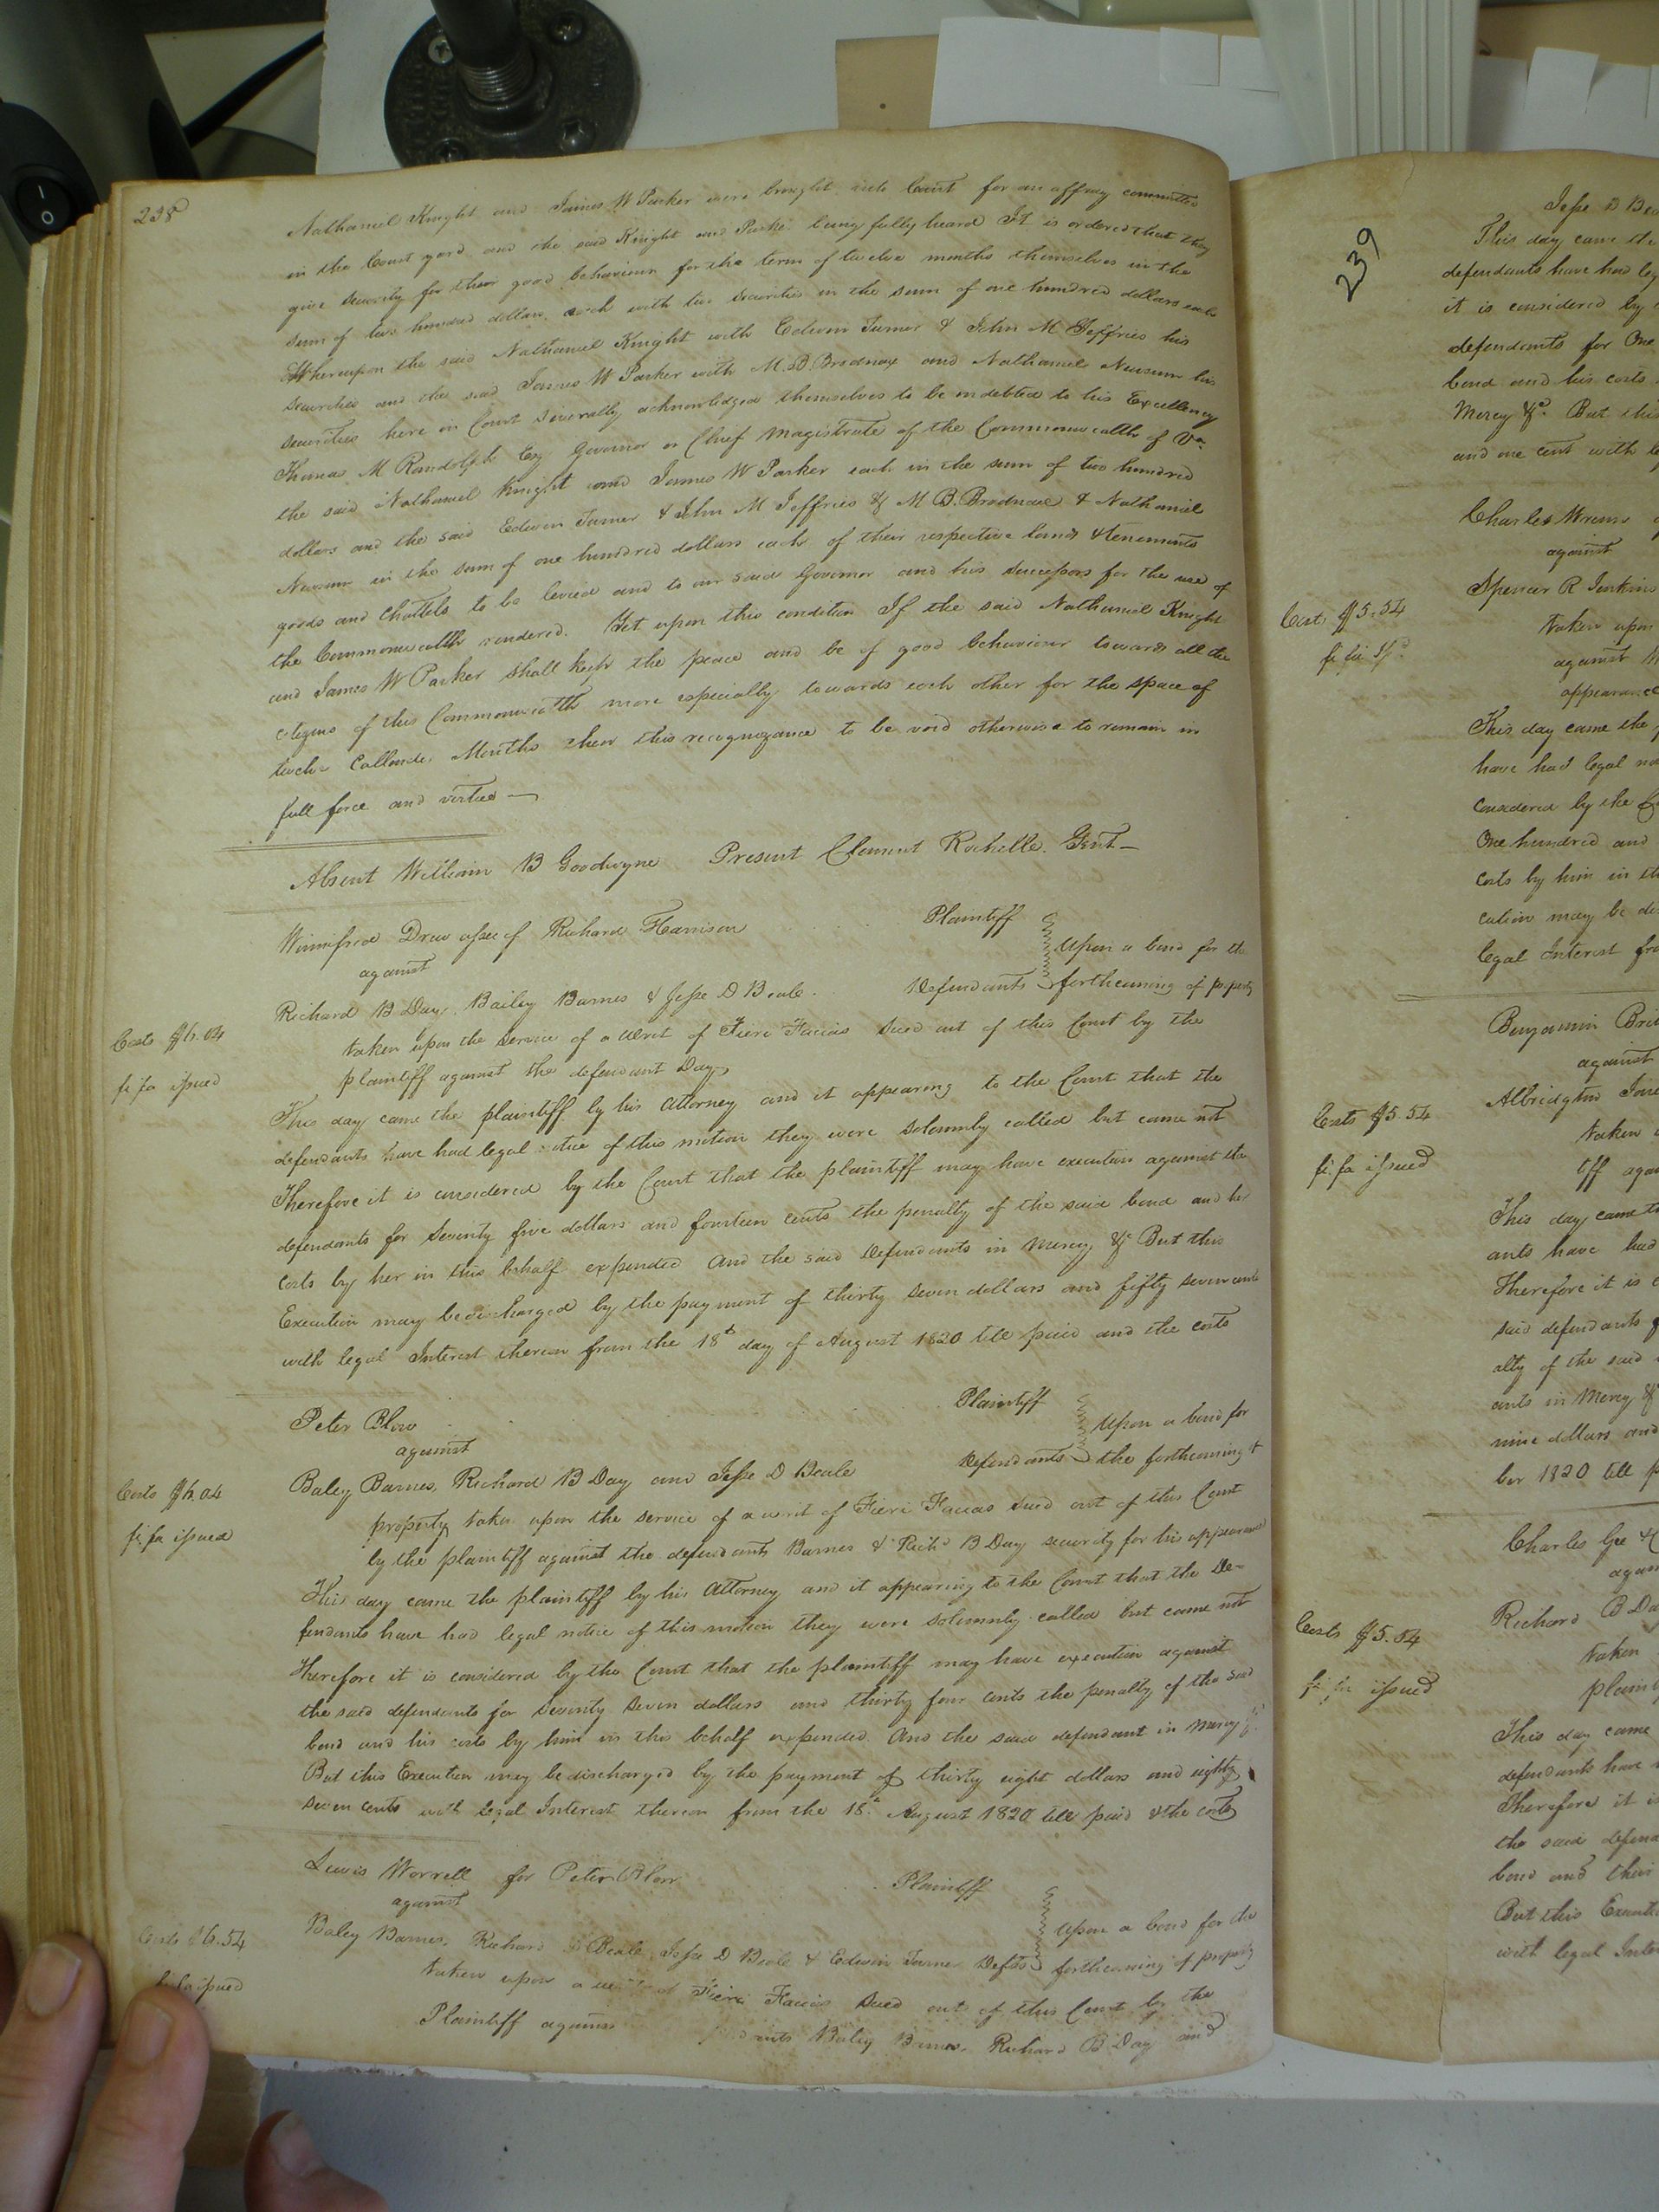 238
Nathaniel Knight and James W Parker were brought into Court for an affray committed
in the Court yard and the said Knight and Parker being fully heard It is ordered that they
give security for their good behaviour for the term of twelve months themselves in the
sum of two hundred dollars each with two securities in the sum of one hundred dollars each
Whereupon the said Nathaniel Knight with Edwin Turner & John M Jeffries his
securities and the said James W Parker with M. B. Brodnax and Nathaniel Newsum his
securities here in Court severally acknowledged themselves to be indebted to his Excellency
Thomas M Randolph Esq Governor or Chief Magistrate of the Commonwealth of Va
the said Nathaniel Knight and James W Parker each in the sum of two hundred
dollars and the said Edwin Turner & John M Jeffries & M B. Brodnax & Nathaniel
Newsum in the sum of one hundred dollars each of their respective lands & tenements
goods and Chattels to be levied and to our said Governor and his Successors for the use of
the Commonwealth rendered. Yet upon this condition If the said Nathaniel Knight
and James W Parker shall keep the peace and be of good behaviour towards all the
citizens of this Commonwealth more especially towards each other for the space of
twelve Callender Months then this recognizance to be void otherwise to remain in
full force and virtue
Absent William B Goodwyne Present Clement Rochelle. Gent
Winnifred Drew assee of Richard Harrison Plaintiff
against Upon a bond for the
Richard B Day, Bailey Barnes & Jesse D Beale. Defendants forthcoming of property
Costs $6.04
taken upon the service of a Writ of Fieri Facias sued out of this Court by the
fi fa issued
plaintiff against the defendant Day,
This day came the plaintiff by his Attorney and it appearing to the Court that the
defendants have had legal notice of this motion they were solemnly called but came not
Therefore it is considered by the Court that the plaintiff may have execution against the
defendants for seventy five dollars and fourteen cents the penalty of the said bond and her
costs by her in this behalf expended And the said Defendants in Mercy &c But this
Execution may be discharged by the payment of thirty seven dollars and fifty seven cents
with legal Interest thereon from the 18th day of August 1820 till paid and the costs
Peter Blow Plaintiff
against Upon a bond for
Baley Barnes, Richard B Day and Jesse D Beale Defendants the forthcoming of
Costs $6.04
property taken upon the service of a writ of Fieri Facias sued out of this Court
fi fa issued
by the plaintiff against the defendants Barnes & Richd B Day security for his appearance
This day came the plaintiff by his Attorney and it appearing to the Court that the De-
fendants have had legal notice of this motion they were solemnly called but came not
therefore it is considered by the Court that the plaintiff may have execution against
the said defendants for seventy seven dollars and thirty four cents the penalty of the said
bond and his costs by him in this behalf expended And the said defendant in mercy &c.
But this Execution may be discharged by the payment of thirty eight dollars and eighty
seven cents with legal Interest thereon from the 18th August 1820 till paid & the costs
Lewis Worrell for Peter Blow Plaintiff
against Upon a bond for the
Baley Barnes, Richard Beale Jesse D Beale & Edwin Turner Defts forthcoming of property
Costs $6.54
taken upon a Fieri Facias sued out of this Court by the
issued
Plaintiff against Baley Barnes. Richard B Day and
239
Jesse D
This day came the
defendants have had
it is considered by
defendants for One
bond and his costs
Mercy &c. But this
and one cent with
Charles
against
Spencer R Jenkins
Costs $5.54
taken upon
against
appearance
This day came the
have had legal
considered by the
One hundred and
costs by him in
cution may be
legal Interest
Benjamin
against
Albridgton
Costs $5.54
taken
fi fa issued
tiff
This day came
ants have had
Therefore it is
said defendants
alty of the said
ants in Mercy &
nine dollars and
ber 1820 till
Charles
Richard B
Costs $5.54
taken
fi fa issued
This day came
defendants have
Therefore it is
the said
bond and their
But this
with legal